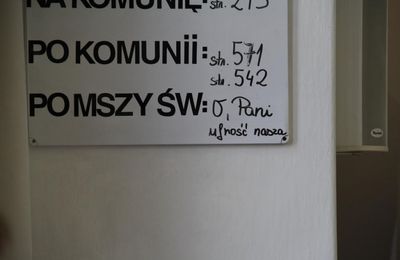 NA KOMUNIĘ: str. 213
PO KOMUNII: str. 571
str. 542
PO MSZY ŚW: O, Pani
ufność nasza